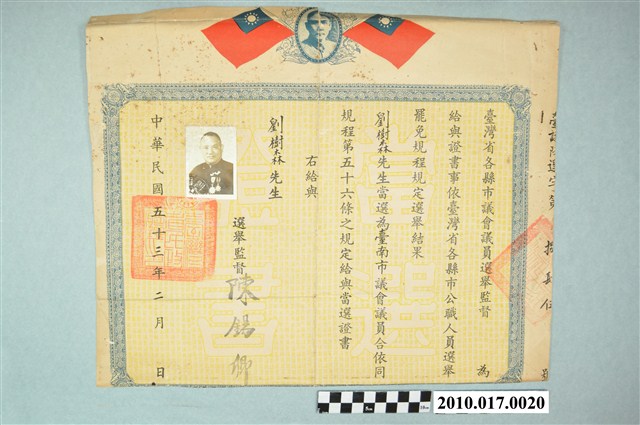 臺灣省各縣市議會議員選舉監督
為
給與證書事依臺灣省各縣市公職人員選舉
罷免規程規定選舉結果
劉樹森先生當選為臺南市議會議員合依同
規程第五十六條之規定給與當選證書
右給與
劉樹森先生
選舉監督陳錫卿
中華民國五十三年二月日
當選證書
2010.017.0020